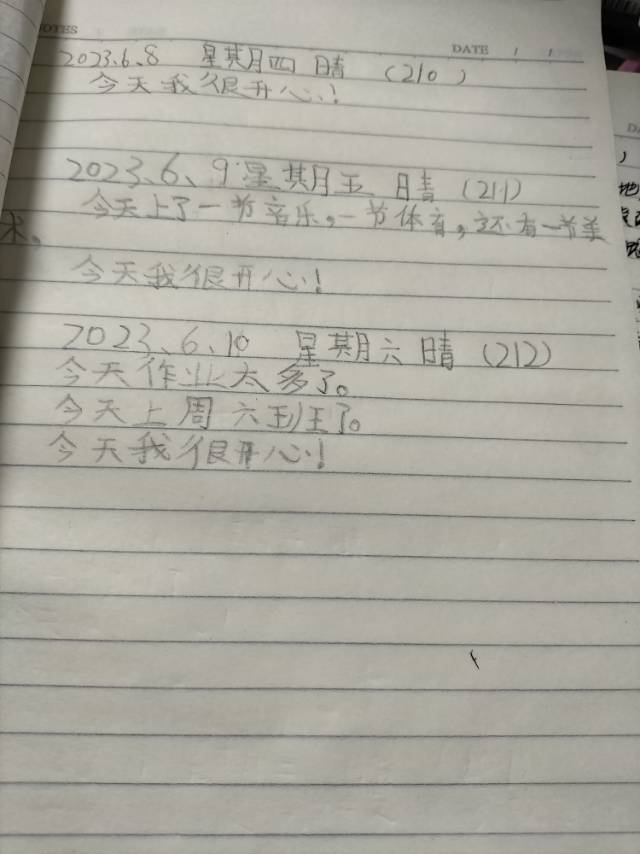 NOTES
DATE / /
2023.6.8 星期四 晴 (210)
今天我很开心!
2023、6、9 星期五 晴 (211)
今天上了一节音乐,一节体育,还有一节美
术。
今天我很开心!
2023、6、10 星期六 晴 (212)
今天作业太多了。
今天上周六班了。
今天我很开心!